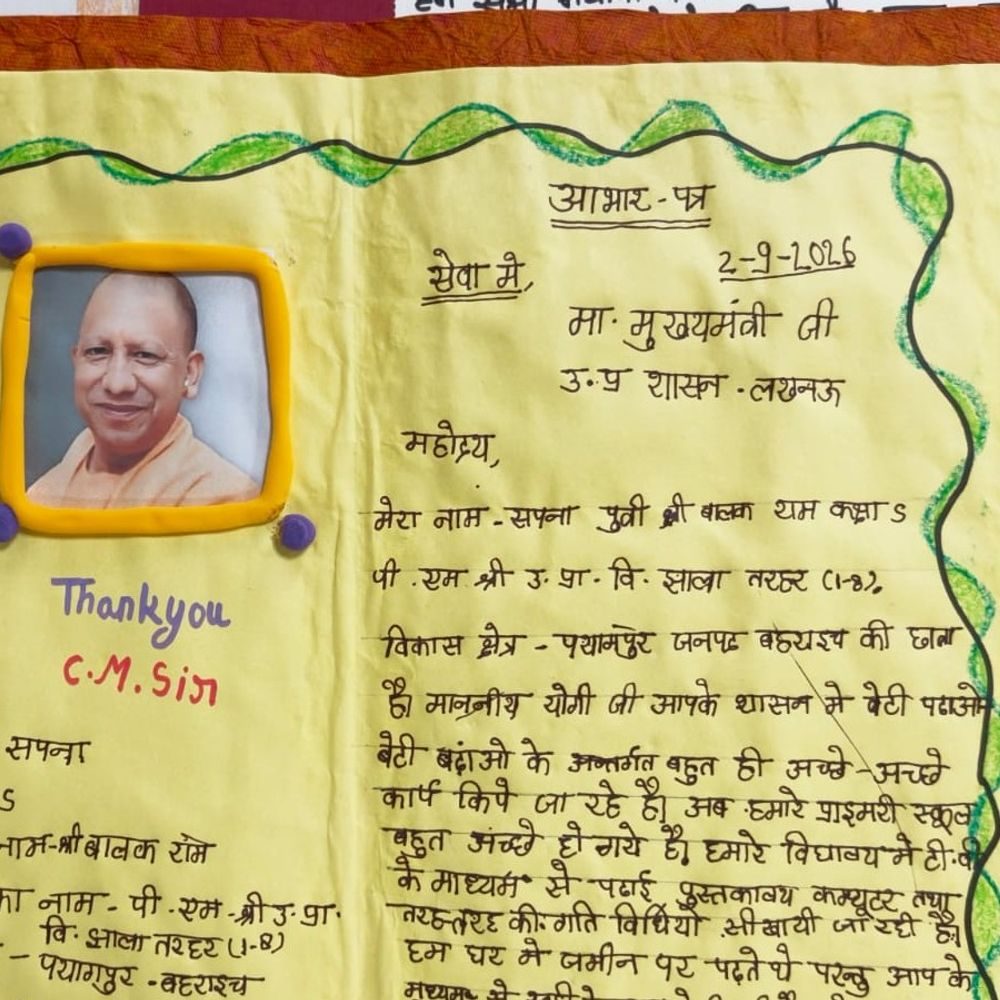 आभार-पत्र
सेवा मे,
2-9-2026
मा. मुख्यमंत्री जी
उ.प्र शासन . लखनऊ
महोदय,
मेरा नाम - सपना पुत्री श्री बालक राम कक्षा 5
पी .एम श्री उ. प्रा. वि. झाला तरहर (1-8).
विकास क्षेत्र - पयागपुर जनपद बहराइच की छात्रा
है। माननीय योगी जी आपके शासन मे बेटी पढाओ
बेटी बढ़ाओ के अन्तर्गत बहुत ही अच्छे-अच्छे
कार्य किये जा रहे है। अब हमारे प्राइमरी स्कूल
बहुत अच्छे हो गये है। हमारे विघालय मे टी.वी
के माध्यम से पढाई पुस्तकालय कम्प्यूटर तथा
तरह-तरह की गति विधियाँ सीखायी जा रही है।
हम घर मे जमीन पर पढ़ते थे परन्तु आप के
Thankyou
C.M.Sir
सपना
5
नाम-श्री बालक राम
का नाम - पी .एम -श्री उ. प्रा.
वि. झाला तरहर (1-8)
- पयागपुर - बहराइच